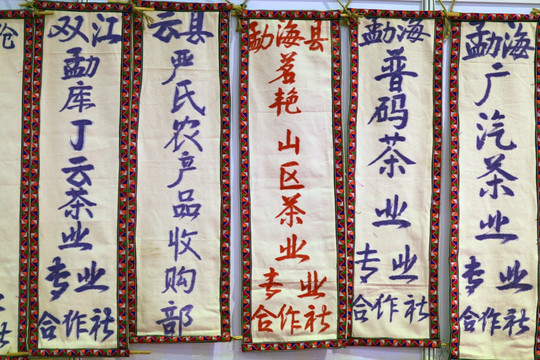 沧
双江
勐库丁云茶业
专业
合作社
云县
严氏农产品收购部
勐海县
茗艳山区茶业
专业
合作社
勐海
普码茶业
专业
合作社
勐海
广汽茶业
专业
合作社